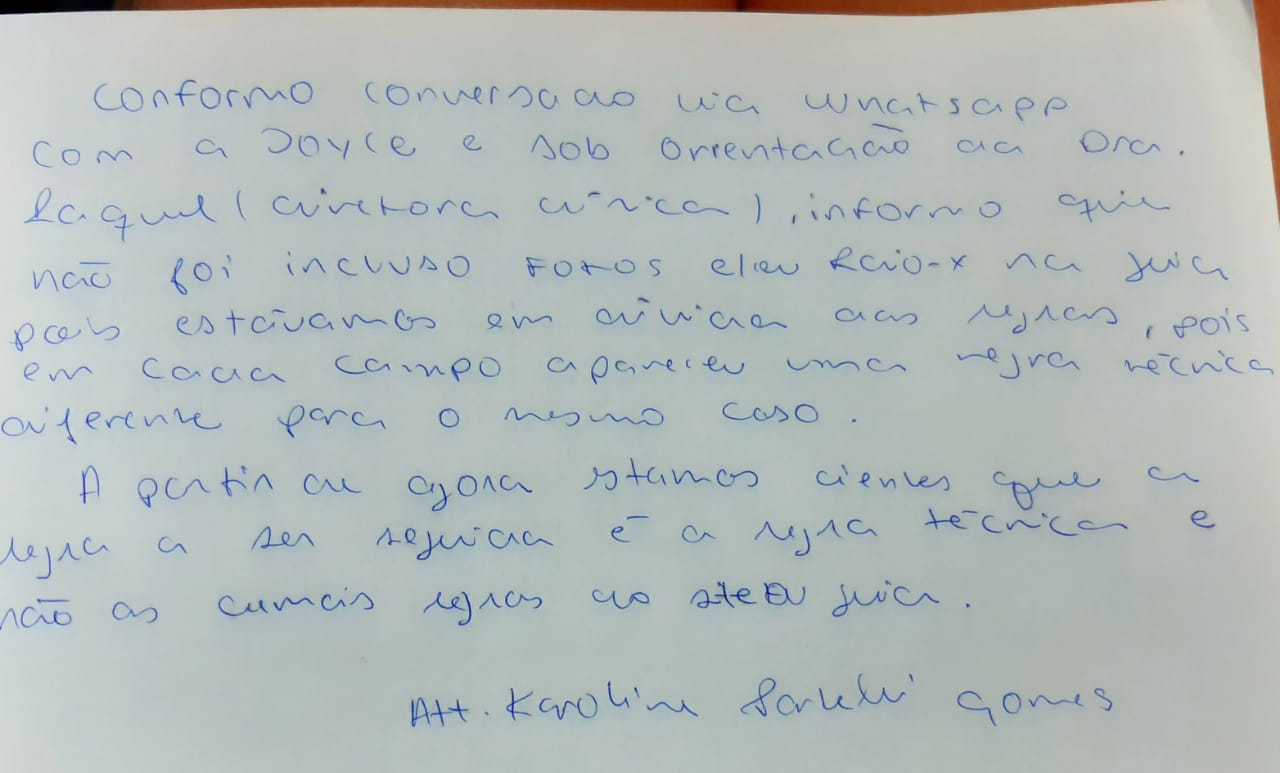 Conformo conversado via Whatsapp
com a Joyce e sob orientação da Dra.
Raquel (diretora clínica), informo que
não foi incluso Fotos e/ou Raio-x na guia
pois estávamos em dúvida das regras, pois
em cada campo apareceu uma regra técnica
diferente para o mesmo caso.
A partir de agora estamos cientes que a
regra a ser seguida é a regra técnica e
não as demais regras do guia.
Att. Karoline Gomes